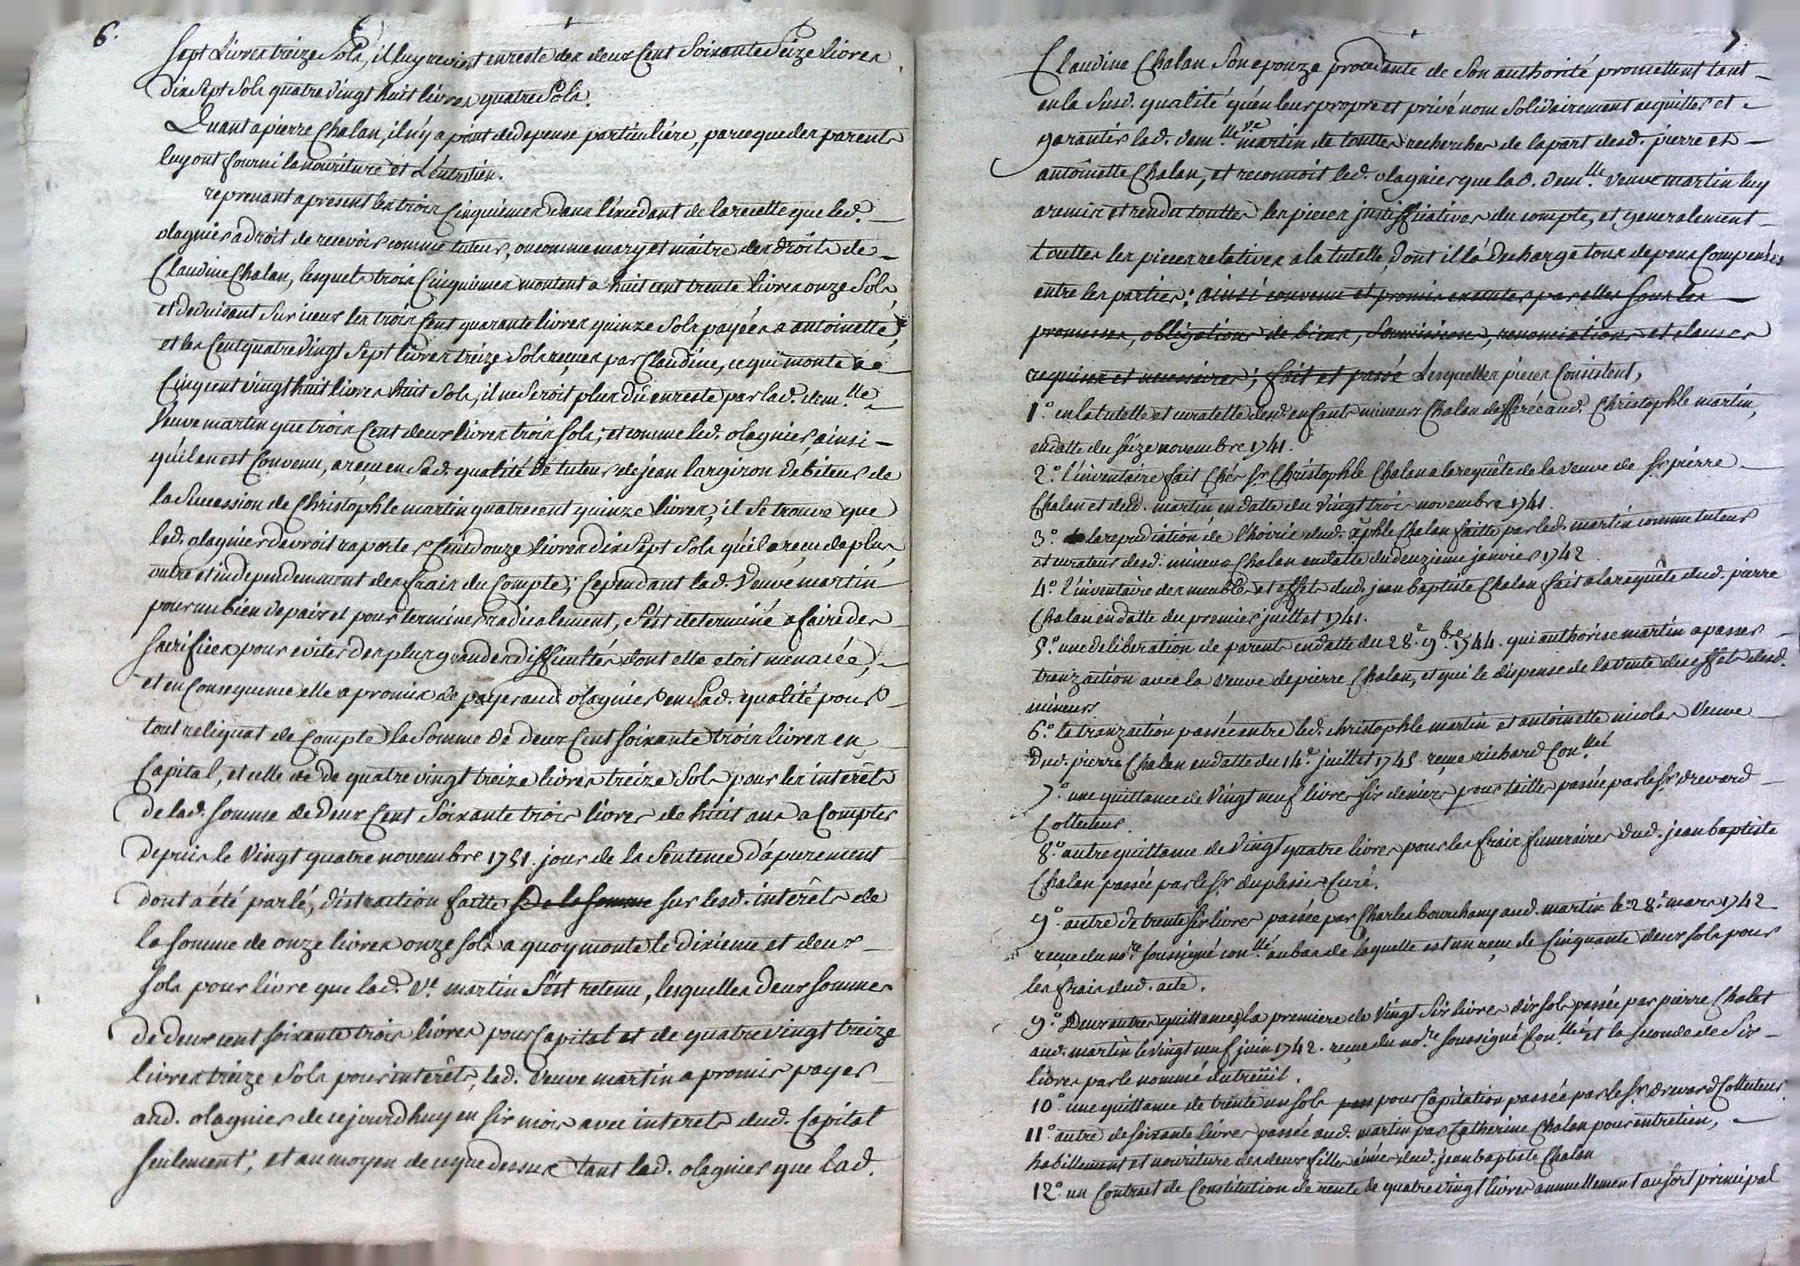 6.
Sept Livres treize Sols, il luy revient en reste des deux Cent Soixante Seize livres
dix Sept Sols quatre vingt huit livres quatre Sols.
Quant a pierre Chalan, il n'y a point de depense particuliére, parce que des parents
luy ont fourni la nouriture et L'entretien.
reprenant a present les trois Cinquiémes dans l'éxcedant de la recette que led.
olagnier a droit de recevoir comme tuteur, ou comme mary et maitre des droits de
Claudine Chalan, lesquels trois Cinquiémes montent a huit cent trente livres onze Sols
et deduisant Sur iceux les trois Cent quarante livres quinze Sols payées a antoinette,
et les Cent quatre vingt Sept livres treize Sols reçues par Claudine, ce qui monte a
Cinq cent vingt huit livres huit Sols, il ne Seroit plus dû en reste par lad. dem.lle
Veuve martin que trois Cent deux livres trois Sols; et comme led. olagnier, ainsi
qu'il en est Convenu, a reçu en Sad. qualité de tuteur de jean largiron debiteur de
la Succession de Christophle martin quatre cent quinze livres, il Se trouve que
led. olagnier devroit raporter Cent douze livres dix Sept Sols qu'il a reçu de plus,
outre et independemment des frais du Compte; Cependant lad. Veuve martin
pour un bien de paix et pour terminer radicalement, S'est determiné a faire des
Sacrifices pour eviter des plus grandes difficultés dont elle etoit menacée,
et en Consequence elle a promis de payer aud. olagnier en Sad. qualité pour
tout reliquat de Compte la Somme de deux Cent soixante trois livres en
Capital, et celle de de quatre vingt treize livres treize Sols pour les interêts
de lad. Somme de deux Cent Soixante trois livres de huit ans a Compter
depuis le Vingt quatre novembre 1751. jour de la Sentence d'apurement
dont a été parlé, distraction faitte De la Somme sur lesd. interêts de
la somme de onze livres onze sols a quoy monte le dixieme et deux
sols pour livre que lad. Ve. martin S'est retenu, lesquelles deux sommes
de deux cent soixante trois livres pour Capital et de quatre vingt treize
livres treize Sols pour interêts, lad. Veuve martin a promis payer
aud. olagnier de ce jourd'huy en six mois avec interets dud. Capital
seulement; et au moyen de ce que dessus tant led. olagnier que lad.
7
Claudine Chalan Son epouze procedante de Son authorité promettent tant
en la Susd. qualité qu'en leur propre et privé nom Solidairement acquitter et
garantir lad. dem.lle Ve martin de touttes recherches de la part desd. pierre et
antoinette Chalan, et reconnoit led. olagnier que lad. dem.lle Veuve martin luy
a remis et rendu touttes les pieces justifficatives du compte, et generalement
touttes les pieces relatives a la tutelle, dont il l'a dechargé tous depens Compensés
entre les parties: ainsi convenu et promis executer par elles Sous les
promesses, obligations de biens, Soumissions, renonciations et clauses
requises et necessaires; fait et passé Lesquelles pieces Consistent,
1.º en la tutelle et curatelle desd. enfants mineurs Chalan defferée aud. Christophle martin,
en datte du Seize novembre 1741.
2.º l'inventaire fait Chés Sr. Christophle Chalan a la requête de la veuve de Sr. pierre
Chalan et dud. martin en datte du Vingt trois novembre 1741.
3.º la repudiation de l'hoirie dud. xphle Chalan faitte par led. martin comme tuteur
et curateur desd. mineurs Chalan en datte du deuzieme janvier 1742
4.º l'inventaire des meubles et effets dud. jean baptiste Chalan fait a la requête dud. pierre
Chalan en datte du premier juillet 1741.
5.º une deliberation de parents en datte du 28.e 9bre 1744. qui authorise martin a passer
tranzaction avec la veuve de pierre Chalan, et qui le dispense de la vente des effets desd.
mineurs
6.º la tranzaction passée entre led. christophle martin et antoinette nicolas Veuve
dud. pierre Chalan en datte du 14.e juillet 1745. reçue richard Con.lleé
7.º une quittance de Vingt neuf livres six deniers pour taille passée par le Sr. drevard
Collecteur.
8.º autre quittance de Vingt quatre livres pour les frais funeraires dud. jean baptiste
Chalan passée par le Sr. duplessis Curé.
9.º autre de trente six livres passée par Charles bourchany aud. martin le 28.e mars 1742
reçue du no.re soussigné con.lleé au bas de laquelle est un reçu de Cinquante deux sols pour
les frais dud. acte.
9.º Deux autres quittances, la premiere de Vingt Six livres dix sols passée par pierre Chalet
aud. martin le vingt neuf juin 1742. reçue du no.re soussigné Con.lleé et la seconde de Six
livres par le nommé dutreüil.
10.º une quittance de trente un sols pour Capitation passée par le Sr. drevard Collecteur.
11.º autre de soixante livres passée aud. martin par Catherine Chalan pour entretien,
habillement et nouriture des deux filles ainées dud. jean baptiste Chalan
12.º un Contrat de Constitution de rente de quatre vingt livres annuellement au sort principal